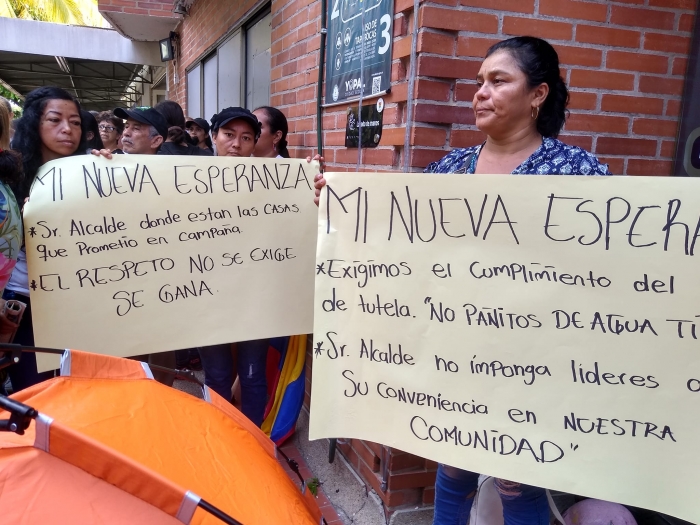 MI NUEVA ESPERANZA
*Sr. Alcalde donde estan las CASAS
que Prometio en campaña.
*EL RESPETO NO SE EXIGE
SE GANA.
MI NUEVA ESPERA
*Exigimos el cumplimiento del
de tutela. "NO PAÑITOS DE AGUA TI
*Sr. Alcalde no imponga lideres a
Su conveniencia en NUESTRA
COMUNIDAD"
2
3
YOPAL